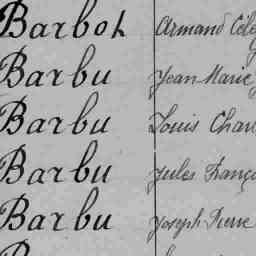 Barbot Armand
Barbu Jean Marie
Barbu Louis
Barbu Jules
Barbu Joseph Pierre